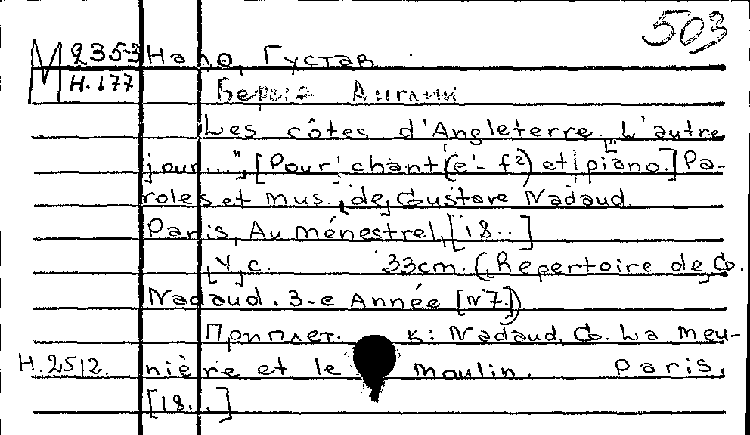 503
М 9353 Надо, Густав
Н.177 Берега Англии
Les côtes d'Angleterre "L'autre
jour...", [Pour chant (e'- f²) et piano.] Pa-
roles et mus. de Gustave Nadaud.
Paris, Au Ménestrel, [18..]
[ ] с. 33cm. (Repertoire de G.
Nadaud. 3-e Année [N7])
Приплет. к: Nadaud, G. La meu-
Н.2512 nière et le moulin. Paris,
[18...]